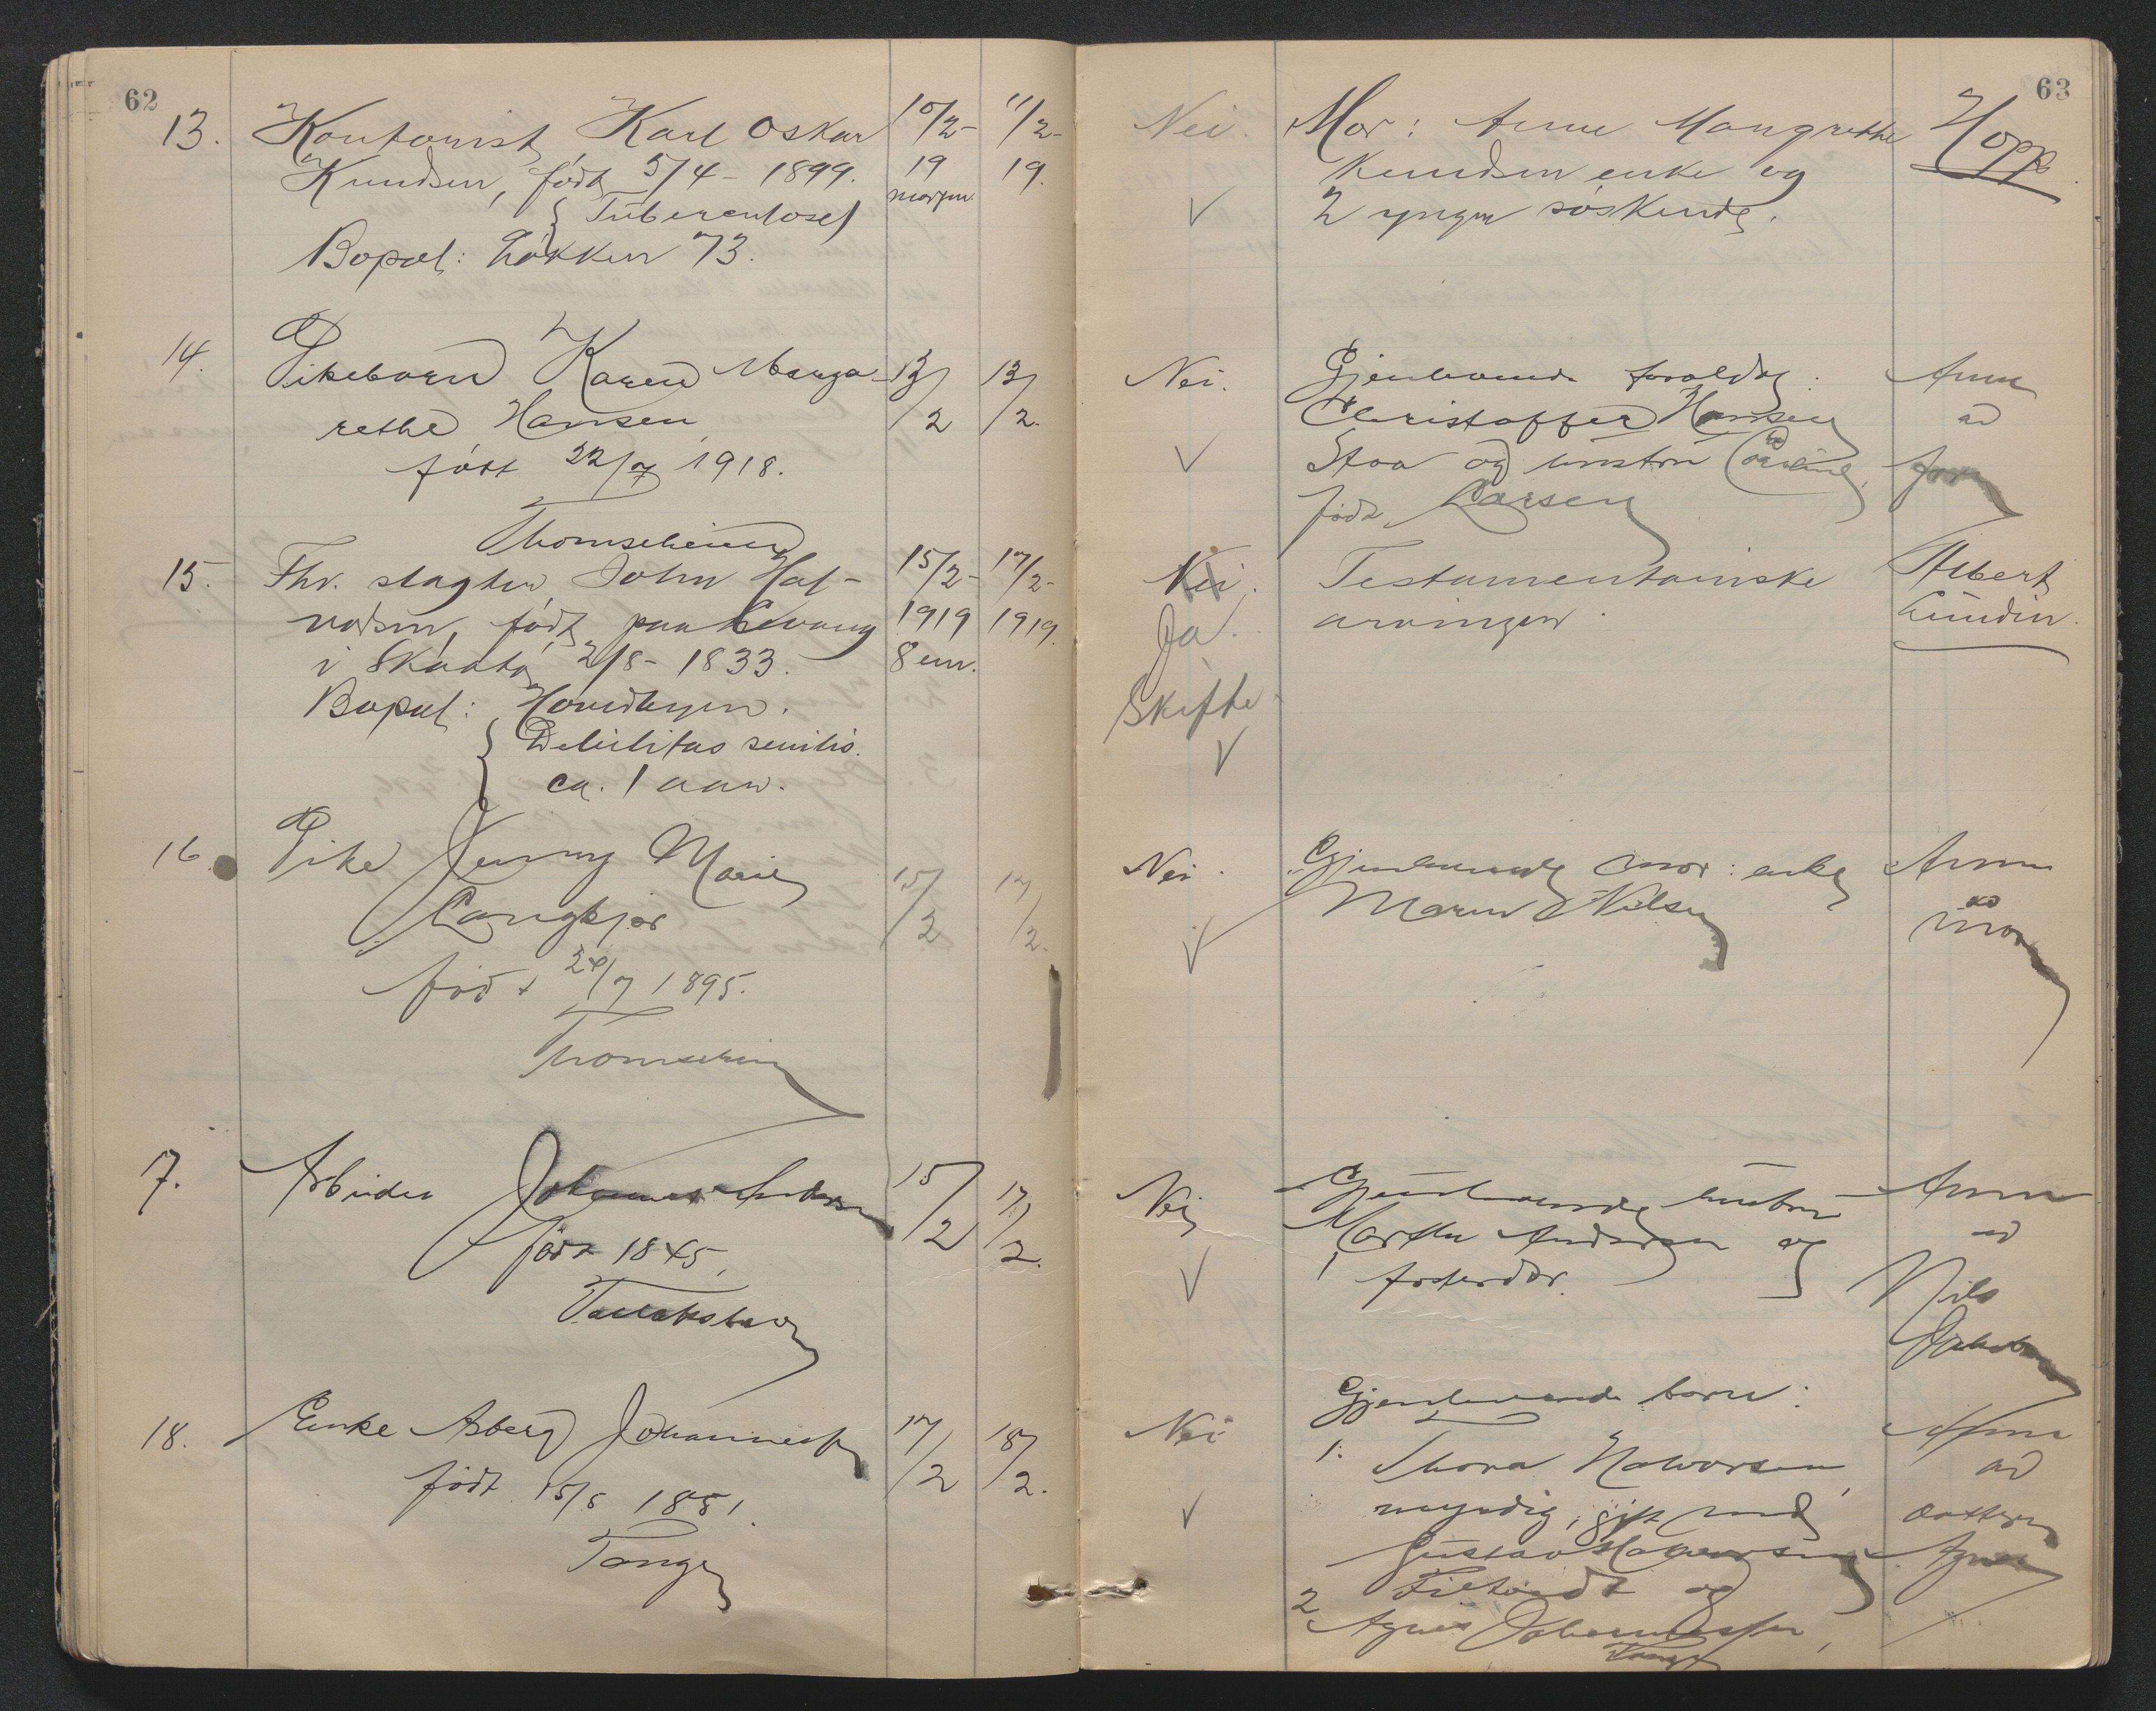 62
13. Kontorist Karl Oskar 10/2- 11/2-
Knudsen, født 5/4 - 1899. 19 19.
{Tuberculose} morgen
Bopæl: Løkken 73.
14. Pikebarn Karen Marga- 13/2 13/2.
rethe Hansen
født 22/7 1918.
Thomseheien
15. Fhv. slagter John Hal- 15/2- 17/2-
vorsen, født paa 1919 1919.
i Skaato 2/8 - 1833. 8 em.
Bopæl: Hovedbyen.
{ Debilitas senilis.
ca. 1 aar.
16. Pike Jenny Marie
Langkjær 15/2 17/2.
født 24/7 1895.
Thomseheien
17. Arbeider Johannes Andersen 15/2 17/2.
født 1845,
Tallakshavn
18. Enke Asberg Johannessen 17/2 18/2.
født 15/5 1851.
Tangen
63
Nei. Mor: Anne Mangrethe Hopp
Knudsen enke og
V 2 yngre søskende.
Nei. Gjenlevende foreldre: Anm
Christoffer Hansen av
V Stoa og hustru Caroline, faren
født Larsen
Nei. Testamentariske Albert
Ja. arvinger. Lundin.
Skifte
V
Nei. Gjenlevende mor: enke Anm
Maren Nilsen av
V moren
Nei Gjenlevende hustru Anm
Marthe Andersen og av
V 1 fosterdtr. Nils
Jakobsen
Gjenlevende barn:
Nei 1. Thora Halvorsen, Anm
av
V myndig, gift med datteren
Gustav Halvorsen Agnes
og
2. Agnes Johannessen,
Tangen